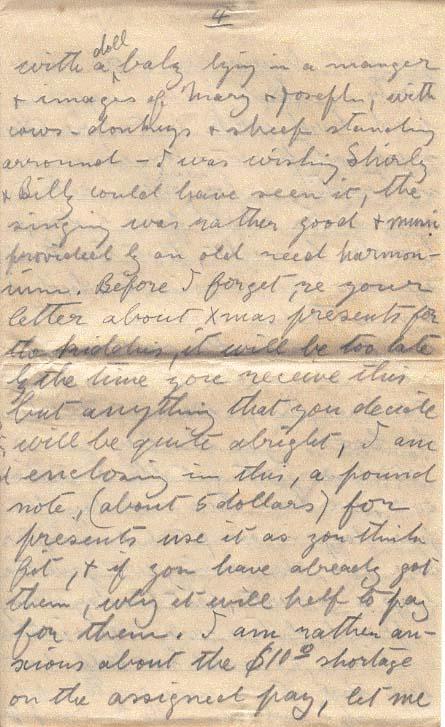 4
with a doll baby lying in a manger
+ images of Mary + Joseph, with
cows - donkeys + sheep standing
arround - I was wishing Shirly
+ Billy could have seen it, the
singing was rather good + music
provided by an old reed harmon-
ium. Before I forget, re your
letter about Xmas presents for
the kiddies, it will be too late
by the time you receive this
but anything that you decide
will be quite alright, I am
enclosing in this, a pound
note, (about 5 dollars) for
presents use it as you think
fit, + if you have already got
them, why it will help to pay
for them. I am rather an-
xious about the $10⁰⁰ shortage
on the assigned pay, let me